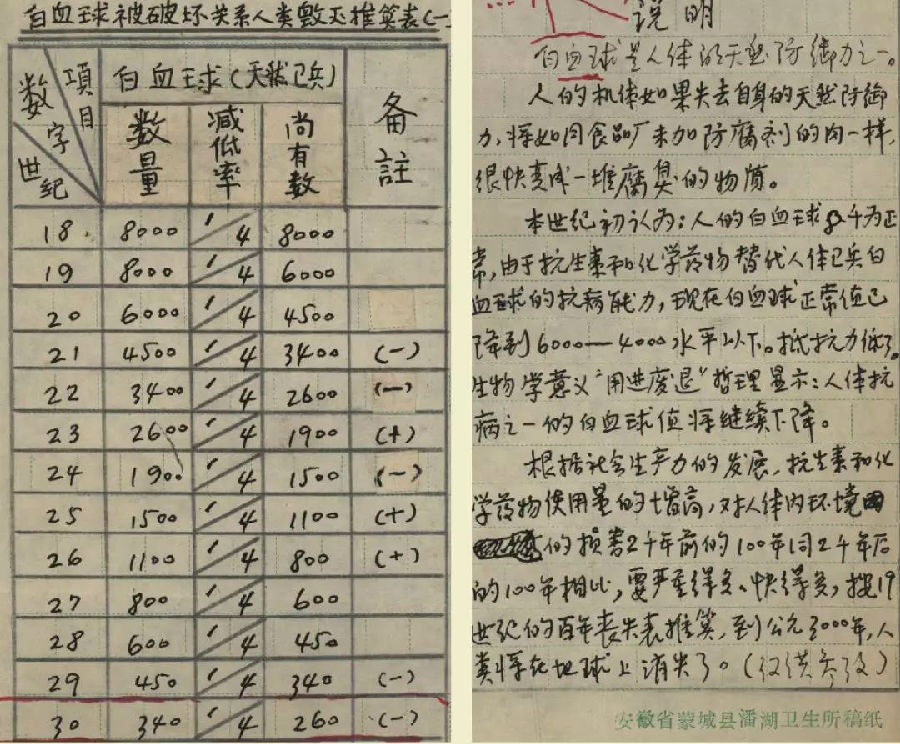 白血球被破坏关系人类毁灭推算表(一
数字 項目 世纪
白血球(天然卫兵)
数量 减低率 尚有数 备註
18. 8000 1/4 8000
19 8000 1/4 6000
20 6000 1/4 4500
21 4500 1/4 3400 (-)
22 3400 1/4 2600 (-)
23 2600 1/4 1900 (+)
24 1900 1/4 1500 (-)
25 1500 1/4 1100 (+)
26 1100 1/4 800 (+)
27 800 1/4 600
28 600 1/4 450
29 450 1/4 340 (-)
30 340 1/4 260 (-)
说明
白血球是人体的天然防御力之一。
人的机体如果失去自身的天然防御
力,将如同食品厂未加防腐剂的肉一样,
很快变成一堆腐臭的物质。
本世纪初认为:人的白血球8千为正
常,由于抗生素和化学药物替代人体卫兵白
血球的抗病能力,现在白血球正常值已
降到6000—4000水平以下。抵抗力低了。
生物学意义"用进废退"哲理显示:人体抗
病之一的白血球值将继续下降。
根据社会生产力的发展,抗生素和化
学药物使用量的增高,对人体内环境
的损害2千年前的100年同2千年后
的100年相比,要严重得多、快得多,按19
世纪的百年丧失表推算,到公元3000年,人
类将在地球上消失了。(仅供参考)
安徽省蒙城县潘湖卫生所稿纸